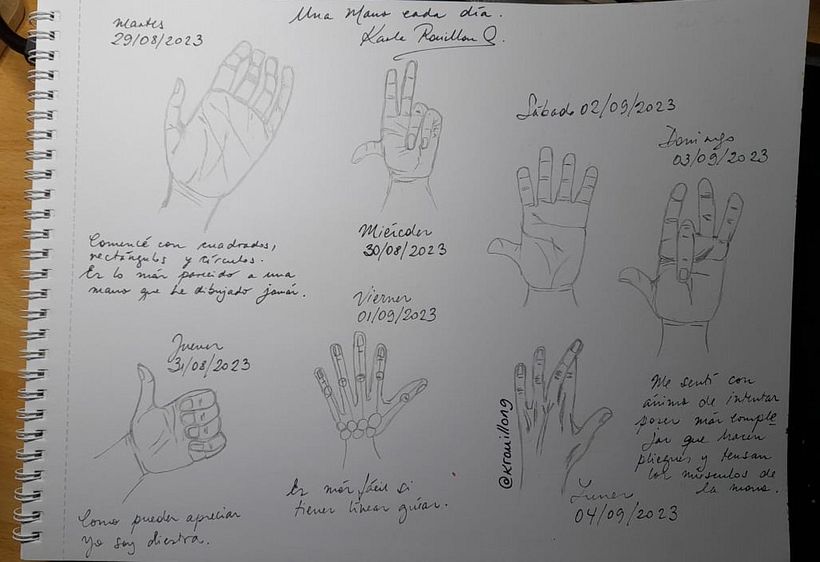 Una Mano cada día.
Karle Rouillon Q.
Martes
29/08/2023
Comencé con cuadrados,
rectángulos y círculos.
Es lo más parecido a una
mano que he dibujado jamás.
Miércoles
30/08/2023
Jueves
31/08/2023
Como pueden apreciar
Yo soy diestra.
Viernes
01/09/2023
Es más fácil si
tienes líneas guías.
Sábado 02/09/2023
Domingo
03/09/2023
Me sentí con
ánimo de intentar
poses más comple
jas que hacen
pliegues y tensan
los músculos de
la mano.
@krouillong
Lunes
04/09/2023